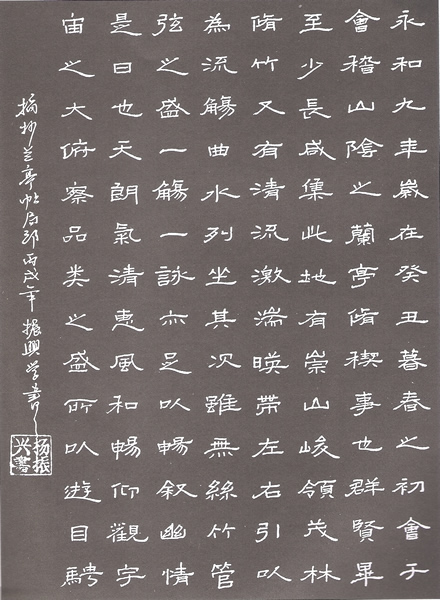 永和九年歲在癸丑暮春之初會于
會稽山陰之蘭亭脩禊事也群賢畢
至少長咸集此地有崇山峻領茂林
脩竹又有清流激湍暎帶左右引以
為流觴曲水列坐其次雖無絲竹管
弦之盛一觴一詠亦足以暢叙幽情
是日也天朗氣清惠風和暢仰觀宇
宙之大俯察品类之盛所以遊目騁
摘抄兰亭帖局部丙戌年振興学書
杨振
兴書